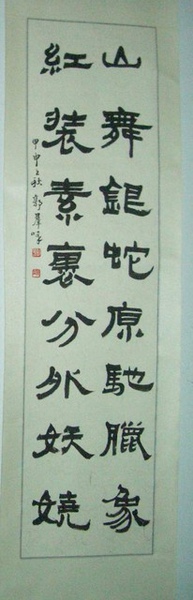 山舞銀蛇原馳臘象
紅裝素裹分外妖嬈
甲申之秋 郭羣峰